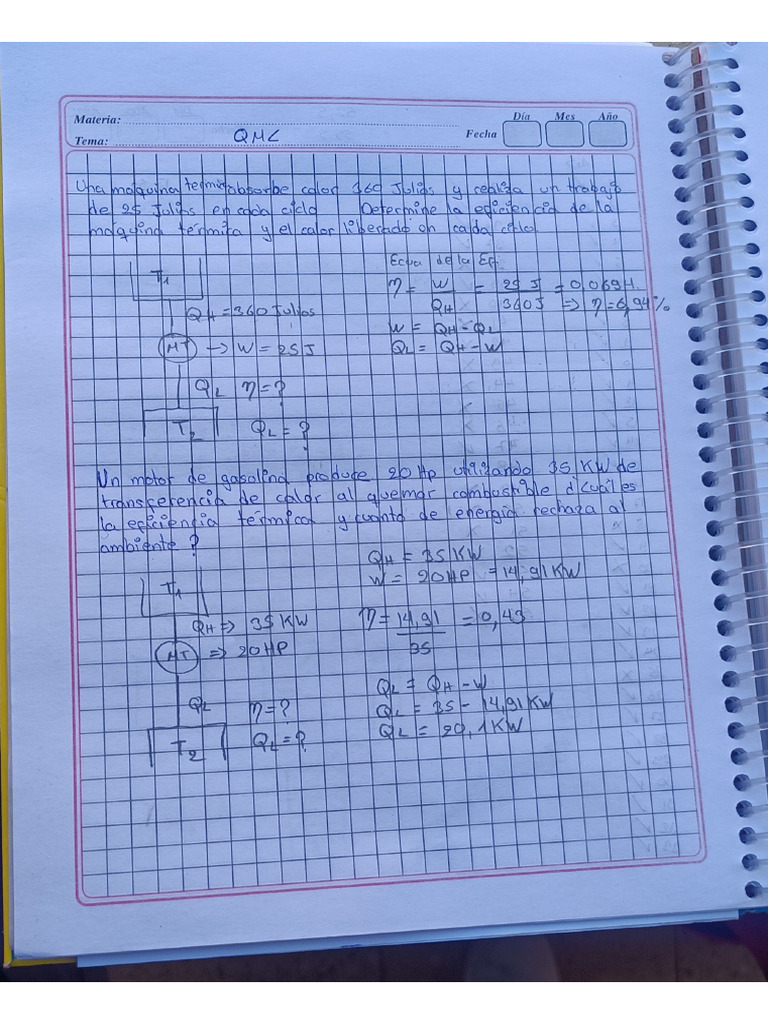 Materia:
Día Mes Año
Tema: QMC Fecha
Una maquina termica absorbe calor 360 Julios y realiza un trabajo
de 25 Julios en cada ciclo Determine la eficiencia de la
maquina térmica y el calor liberado en cada ciclo
T1
QH = 360 Julios
MT → W = 25 J
QL η = ?
T2 QL = ?
Ecua de la Ef.
η = W / QH = 25 J / 360 J = 0,0694. ⇒ η = 6,94 %
W = QH - QL
QL = QH - W
Un motor de gasolina produce 20 Hp utilizando 35 KW de
transferencia de calor al quemar combustible ¿cuál es
la eficiencia térmica y cuanto de energia rechaza al
ambiente?
T1
QH ⇒ 35 KW
MT ⇒ 20 HP
QL η = ?
T2 QL = ?
QH = 35 KW
W = 20 HP = 14,91 KW
η = 14,91 / 35 = 0,43
QL = QH - W
QL = 35 - 14,91 KW
QL = 20,1 KW